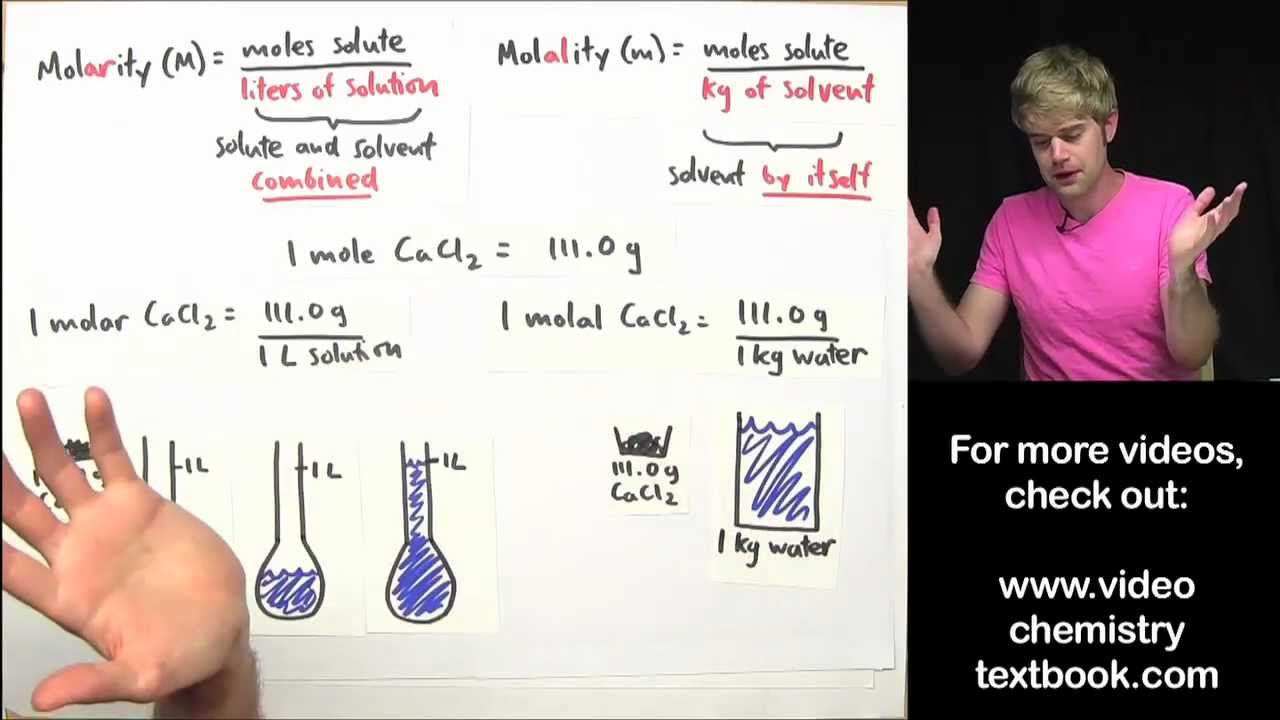 Molarity (M) = moles solute
liters of solution
solute and solvent
combined
Molality (m) = moles solute
kg of solvent
solvent by itself
1 mole CaCl₂ = 111.0 g
1 molar CaCl₂ = 111.0 g
1 L solution
1 molal CaCl₂ = 111.0 g
1 kg water
1L
1L
1L
111.0 g
CaCl₂
1 kg water
For more videos,
check out:
www.video
chemistry
textbook.com